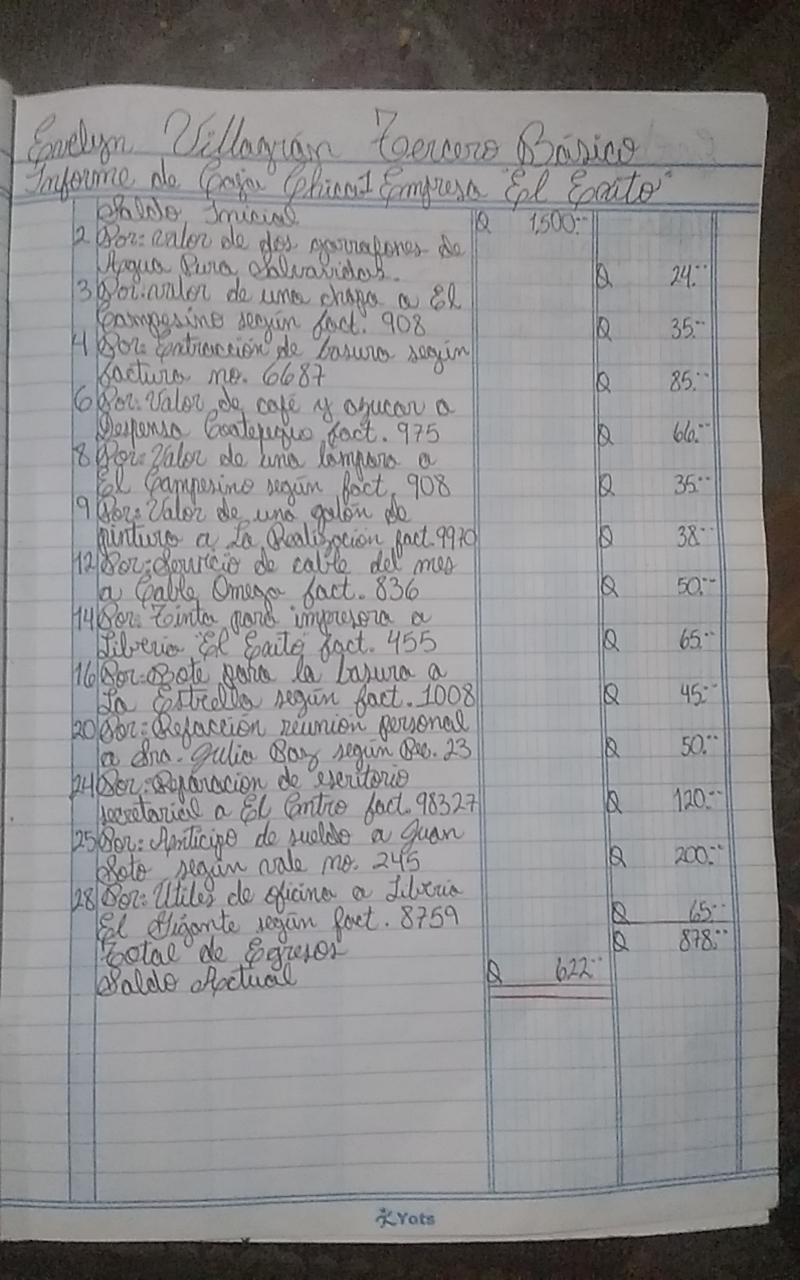 Evelyn Villagrán Tercero Básico
Informe de Caja Chica 1 Empresa "El Exito"
Saldo Inicial Q 1,500.--
2 Por: valor de dos garrafones de
Agua Pura Salvavidas. Q 24.--
3 Por: valor de una chapa a El
Campesino según fact. 908 Q 35.--
4 Por: Extracción de basura según
factura no. 6687 Q 85.--
6 Por: Valor de café y azucar a
Despensa fact. 975 Q 66.--
8 Por: Valor de una lámpara a
El Campesino según fact. 908 Q 35.--
9 Por: Valor de una galón de
pintura a La Realización fact. 9970 Q 38.--
12 Por: Servicio de cable del mes
a Cable Omega fact. 836 Q 50.--
14 Por: Tinta para impresora a
Libreria "El Exito" fact. 455 Q 65.--
16 Por: Bote para la basura a
La Estrella según fact. 1008 Q 45.--
20 Por: Refacción reunion personal
a Sra. Julia Paz según Rec. 23 Q 50.--
24 Por: Reparacion de escritorio
secretarial a El Centro fact. 98327 Q 120.--
25 Por: Anticipo de sueldo a Juan
Soto según vale no. 245 Q 200.--
28 Por: Utiles de oficina a Libreria
El Gigante según fact. 8759 Q 65.--
Total de Egresos Q 878.--
Saldo Actual Q 622.--
Yots